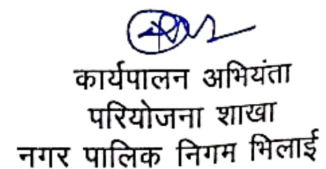 कार्यपालन अभियंता
परियोजना शाखा
नगर पालिक निगम भिलाई